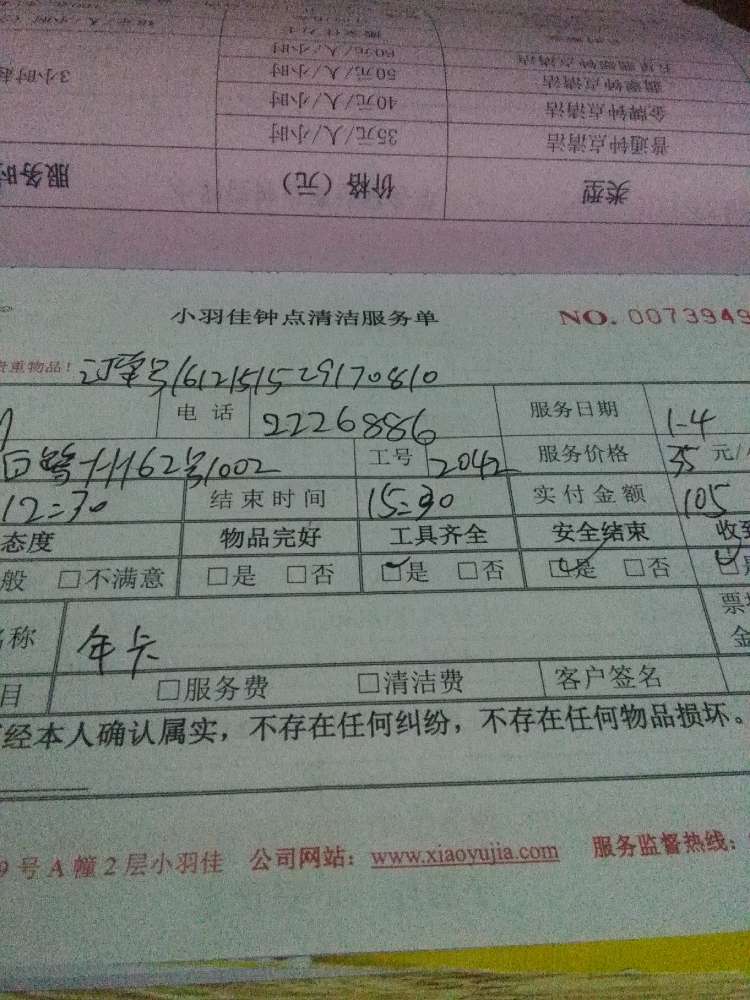 类型 价格（元） 服务时
普通钟点清洁 35元/人/小时
金牌钟点清洁 40元/人/小时
50元/人/小时 3小时起
60元/人/小时
小羽佳钟点清洁服务单 NO. 0073949
贵重物品！ 1612151529170810
电话 2226886 服务日期 1-4
162号1002 工号 2042 服务价格 35 元/
12:30 结束时间 15:30 实付金额 105
态度 物品完好 工具齐全 安全结束 收到
般 □不满意 □是 □否 □是 □否 □是 □否 □是
名称 年卡 票
金
目 □服务费 □清洁费 客户签名
经本人确认属实，不存在任何纠纷，不存在任何物品损坏。
9号A幢2层小羽佳 公司网站：www.xiaoyujia.com 服务监督热线：